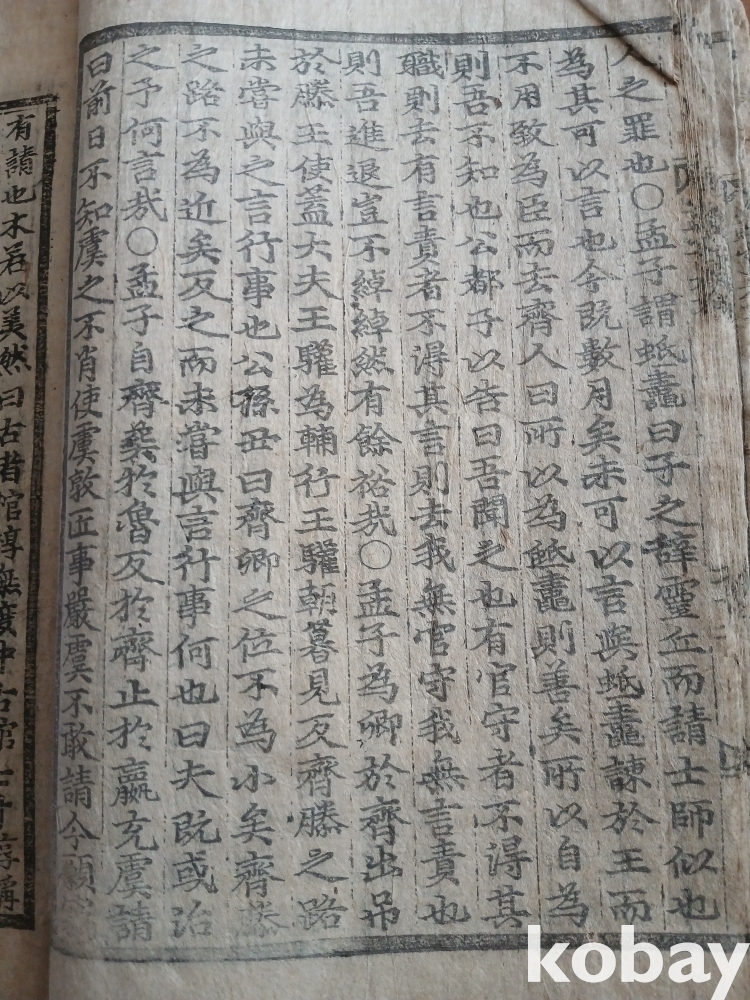 人之罪也○孟子謂蚳鼃曰子之辭靈丘而請士師似也
為其可以言也今既數月矣未可以言與蚳鼃諫於王而
不用致為臣而去齊人曰所以為蚳鼃則善矣所以自為
則吾不知也公都子以告曰吾聞之也有官守者不得其
職則去有言責者不得其言則去我無官守我無言責也
則吾進退豈不綽綽然有餘裕哉○孟子為卿於齊出吊
於滕王使蓋大夫王驩為輔行王驩朝暮見反齊滕之路
未嘗與之言行事也公孫丑曰齊卿之位不為小矣齊滕
之路不為近矣反之而未嘗與言行事何也曰夫既或治
之予何言哉○孟子自齊葬於魯反於齊止於嬴充虞請
曰前日不知虞之不肖使虞敦匠事嚴虞不敢請今願
有請也木若以美然曰古者棺槨無度中古棺七寸槨稱
kobay